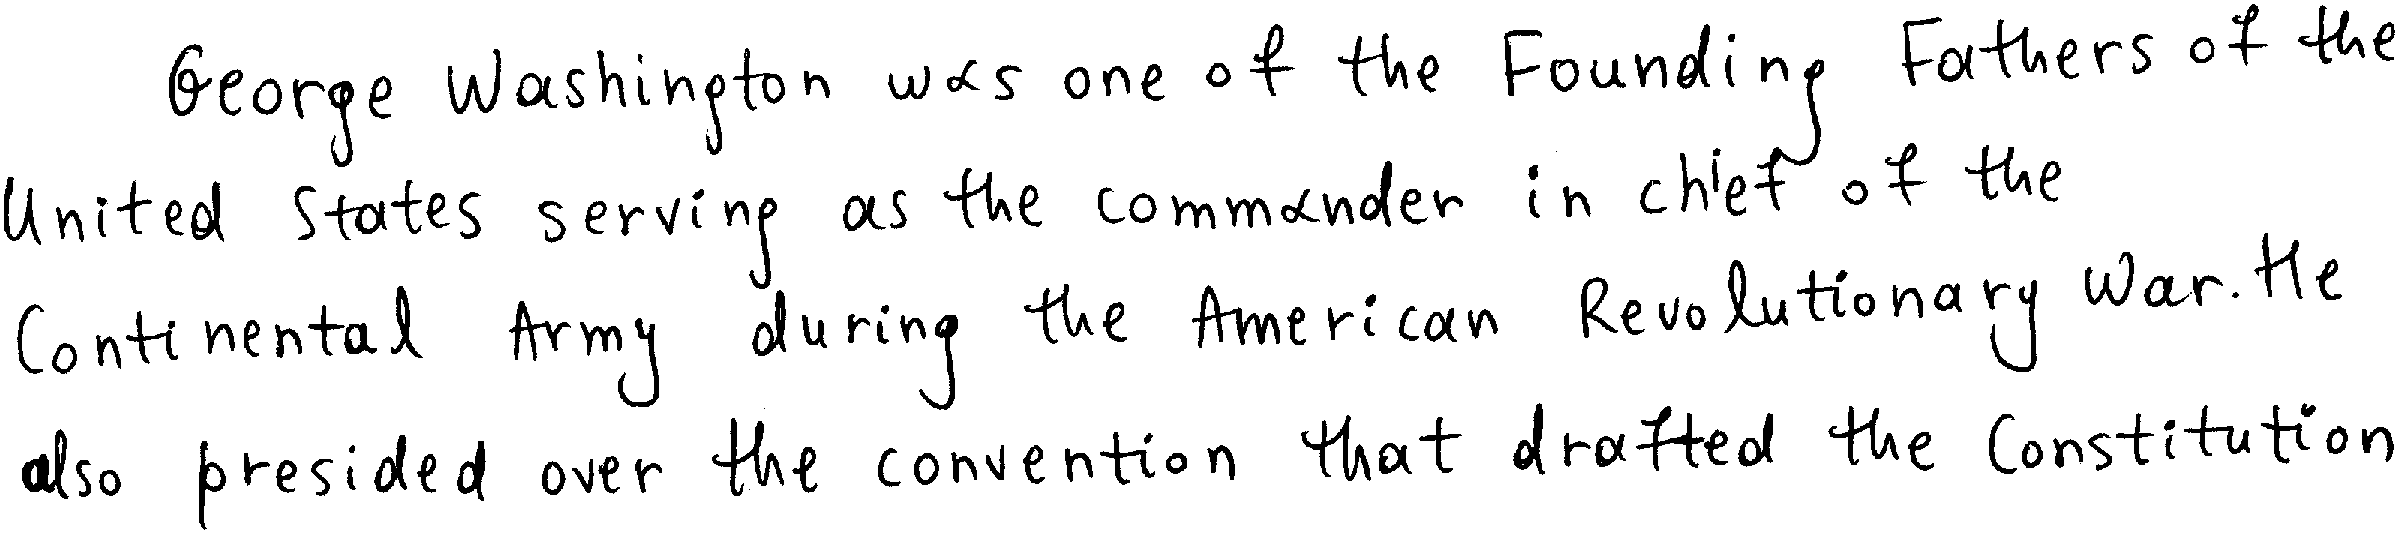 George Washington was one of the Founding Fathers of the
United States serving as the commander in chief of the
Continental Army during the American Revolutionary War. He
also presided over the convention that drafted the Constitution